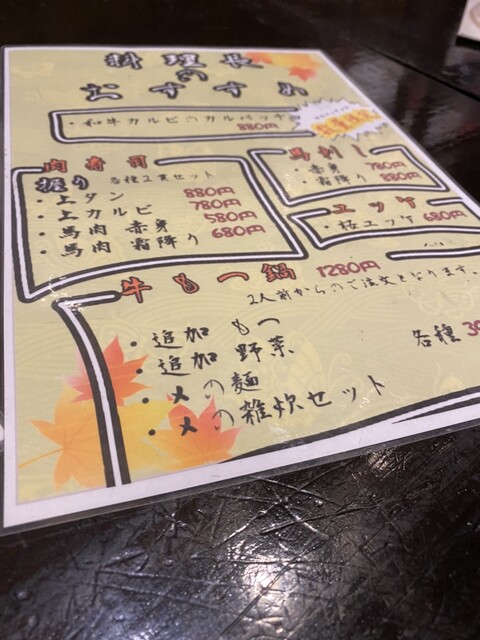 料理長
の
おすすめ
・和牛カルビのカルパッチョ
880円
肉寿司
握り 各種2貫セット
・上タン 880円
・上カルビ 780円
・馬肉 赤身 580円
・馬肉 霜降り 680円
馬刺し
・赤身 780円
・霜降り 880円
ユッケ
・桜ユッケ 680円
牛もつ鍋 1280円
2人前からのご注文となります。
・追加 もつ
・追加 野菜
・〆の麺
・〆の雑炊セット
各種